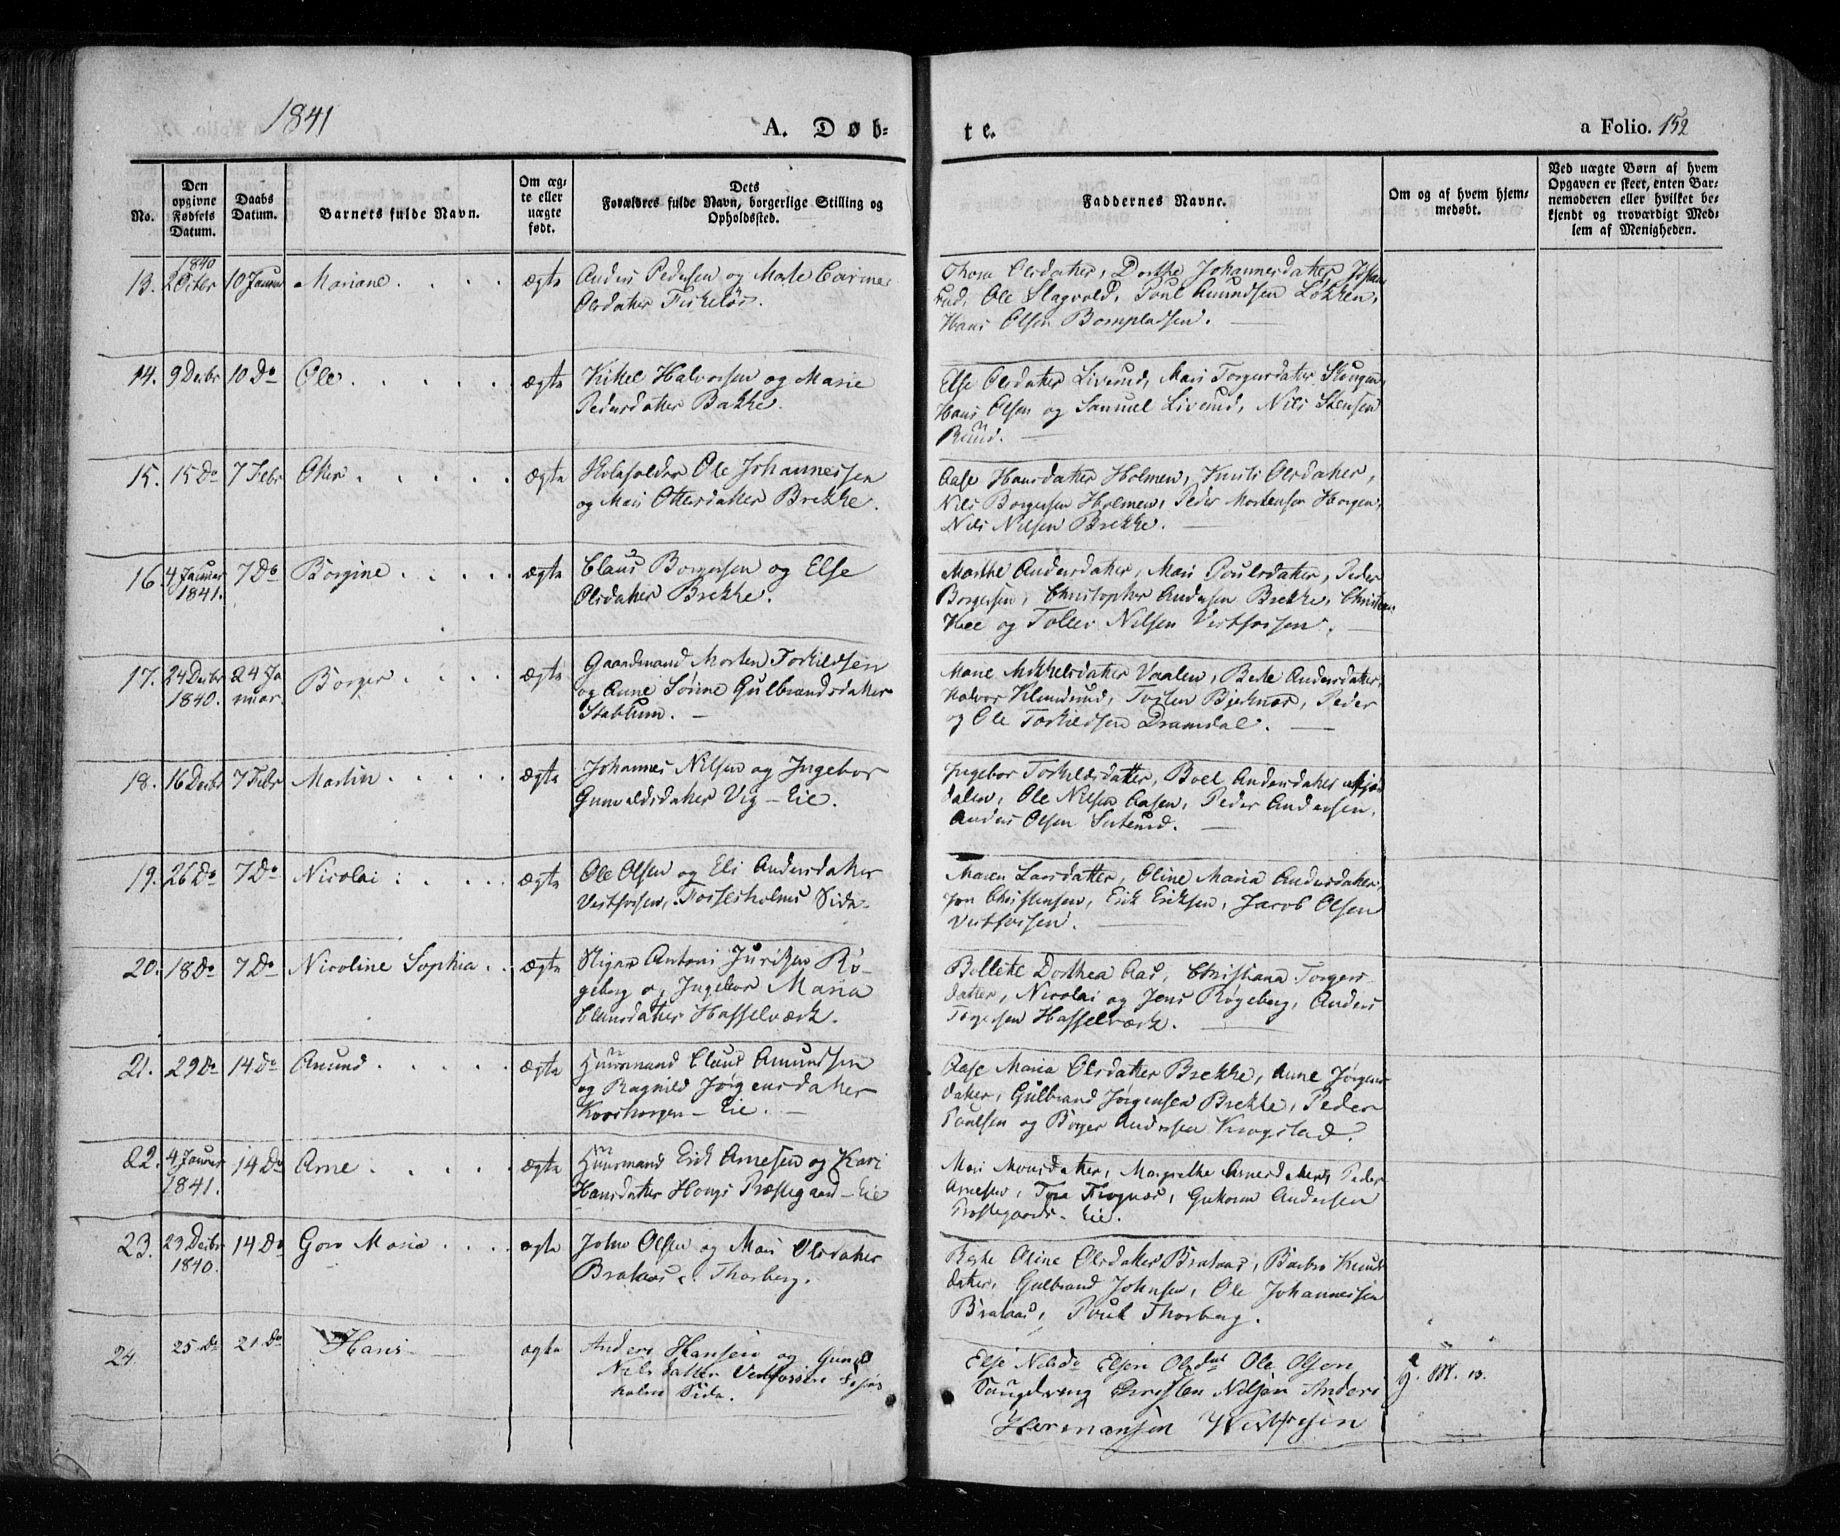 1841
A. Døb-
te.
a Folio. 152
No.
Den
opgivne
Fødsels
Datum.
Daabs
Datum.
Barnets fulde Navn.
Om æg-
te eller
uægte
født.
Dets
Forældres fulde Navn, borgerlige Stilling og
Opholdssted.
Faddernes Navne.
Om og af hvem hjem-
medøbt.
Ved uægte Børn af hvem
Opgaven er skeet, enten Bar-
nemoderen eller hvilket be-
kjendt og troværdigt Med-
lem af Menigheden.
1840
13. 2 Octbr 10 Januar Mariane ægte Anders Pedersen og Marte Carine
Olsdatter Fiskeløs.
Olsdatter, Dorthe Johannesdatter
rud, Ole Slagvold, Poul Amundsen Løkken,
Hans Olsen Bompladsen.
14. 9 Decbr 10 Do Ole ægte Kittel Halvorsen og Marie
Pedersdatter Bakke.
Else Olsdatter Liverud, Mari Torgersdatter Skougen,
Hans Olsen og Samuel Liverud, Nils Stensen
Ruud.
15. 15 Do 7 Febr Otter ægte Ole Johannessen
og Mari Ottersdatter Brekke.
Aase Hansdatter Holmen, Kristi Olsdatter,
Nils Borgersen Holmen, Peder Mortensen Horgen,
Nils Nilsen Brekke.
16. 4 Januar 7 Do Borgine ægte Claus Borgersen og Else
1841.
Olsdatter Brekke.
Marthe Andersdatter, Mari Poulsdatter, Peder
Borgersen, Christopher Andersen Brekke, Christen
og Tollev Nilsen Vestfossen.
17. 24 Decbr 24 Ja Borger ægte Gaardmand Morten Torkildsen
1840. nuar.
og Anne Sørine Gulbrandsdatter
Stablum.
Marie Mikkelsdatter Vaalen, Berte Andersdatter,
Halvor Klunderud, Torsten Bjerknæs, Peder
og Ole Torkildsen Dramdal.
18. 16 Decbr 7 Febr Martin ægte Johannes Nilsen og Ingebor
Gunvaldsdatter Vig-Eie.
Ingebor Torkildsdatter, Boel Andersdatter
dalen, Ole Nilsen Aasen, Peder Andersen,
Anders Olsen
19. 26 Do 7 Do Nicolai ægte Ole Olsen og Eli Andersdatter
Vestfossen, Fossesholms Sida
Maren Larsdatter, Oline Maria Andersdatter,
Jon Christensen, Erik Eriksen, Jacob Olsen
Vestfossen.
20. 18 Do 7 Do Nicoline Sophia ægte Stiger Antoni Jürgsen Rø-
geberg og Ingebor Maria
Clausdatter Hasselværk.
Bollette Dorthea Aas, Christiana Torgers-
datter, Nicolai og Jens Røgeberg, Anders
Torgersen Hasselværk.
21. 29 Do 14 Do Amund ægte Huusmand Claus Amundsen
og Ragnild Jørgensdatter
Korshorgen-Eie.
Aase Maria Olsdatter Brekke, Anne Jørgens
datter, Gulbrand Jørgensen Brekke, Peder
Poulsen og Borger Andersen Krogstad.
22. 4 Januar 14 Do Arne ægte Huusmand Erik Arnesen og Kari
1841.
Hansdatter Hougs Præstegaard-Eie
Mari Monsdatter, Margrethe Arnesdatter, Peder
Arnesen, Tore Frognæs, Guttorm Andersen
Præstegaards-Eie.
23. 23 Decbr 14 Do Goro Maria ægte John Olsen og Mari Olsdatter
1840.
Brataas Thorberg.
Berthe Oline Olsdatter Brataas, Barbro Knuds
datter, Gulbrand Johnsen, Ole Johannessen
Brataas, Poul Thorberg.
24. 25 Do 21 Do Hans ægte Anders Hansen og Gunil
Nilsdatter Vestfossen Fosses
holms Sida.
Else Nilsd. Elsen Olsdat Ole Olsen
Saugdreng Christen Nilsen Anders
Hermansen Vestfossen